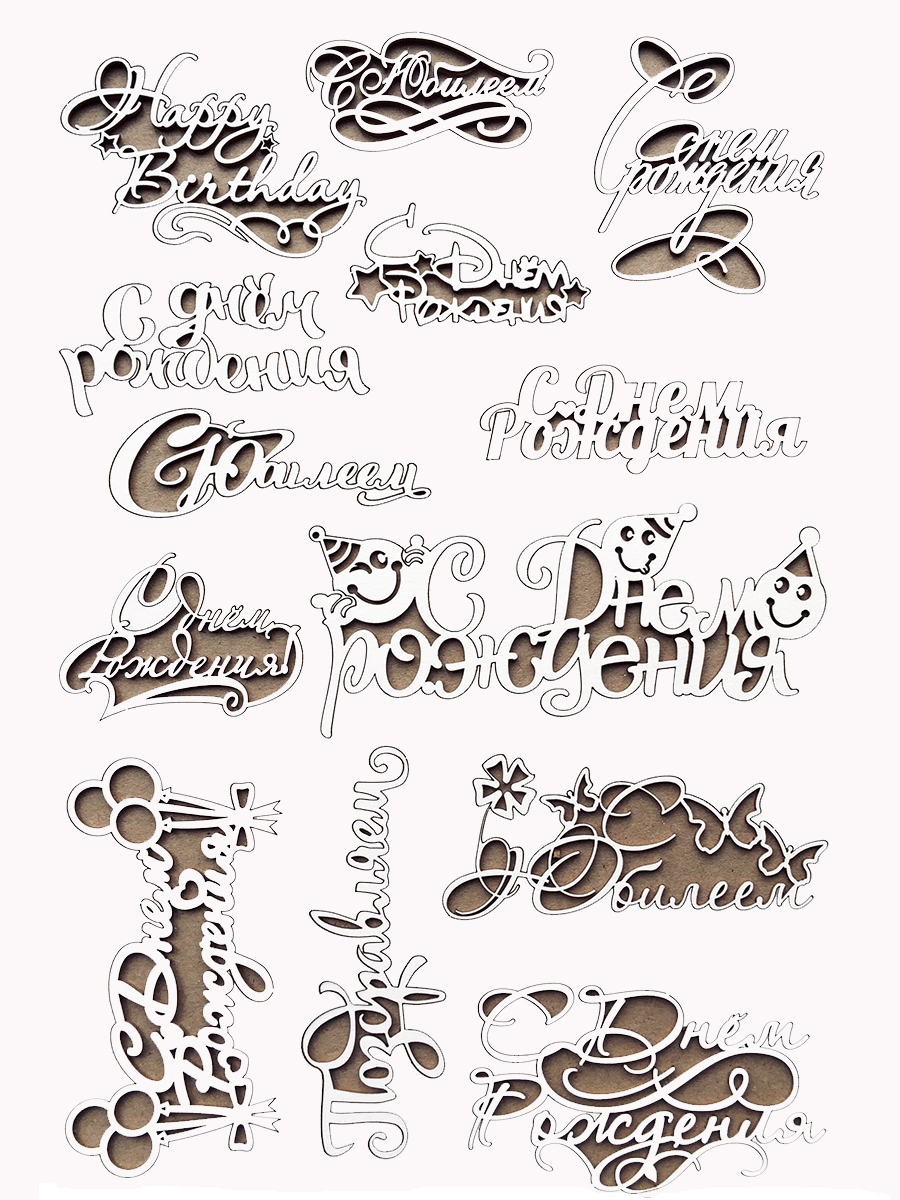 Happy
Birthday
С Юбилеем
С днем
рождения
С Днём
Рождения
С днём
рождения
С Днем
Рождения
С Юбилеем
С днём
Рождения!
С Днем
рождения
С Днем
Рождения
Поздравляем
С Юбилеем
С Днём
Рождения